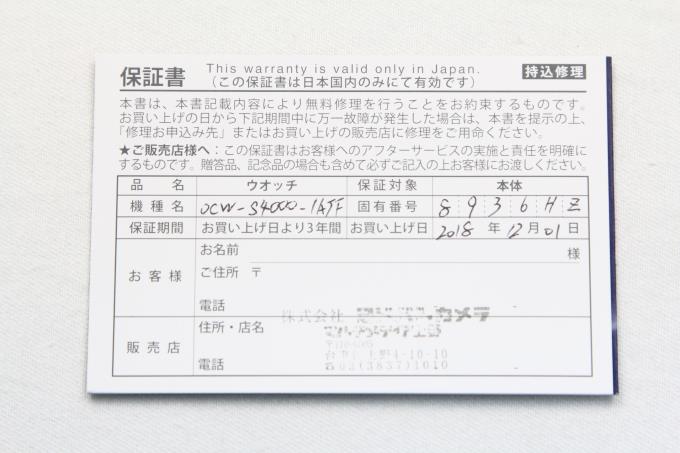 保証書 This warranty is valid only in Japan. 持込修理
（この保証書は日本国内のみにて有効です）
本書は、本書記載内容により無料修理を行うことをお約束するものです。
お買い上げの日から下記期間中に万一故障が発生した場合は、本書を提示の上、
「修理お申込み先」またはお買い上げの販売店に修理をご用命ください。
★ご販売店様へ：この保証書はお客様へのアフターサービスの実施と責任を明確に
するものです。贈答品、記念品の場合も含めて必ずご記入の上お客様にお渡しください。
品名 ウオッチ 保証対象 本体
機種名 OCW-S4000-1AJF 固有番号 8936HZ
保証期間 お買い上げ日より3年間 お買い上げ日 2018年12月01日
お客様 お名前 様
ご住所 〒
電話
株式会社 カメラ
販売店 住所・店名
台東区上野4-10-10
電話 03(3837)1010